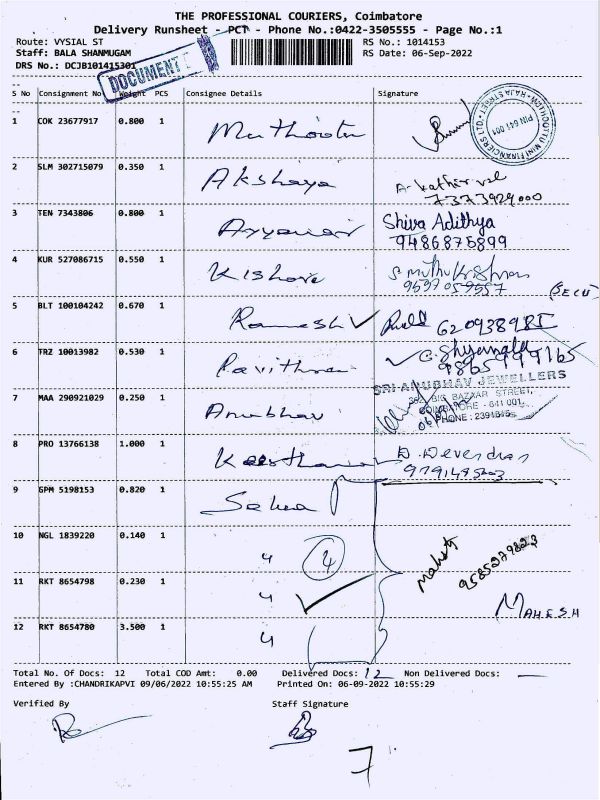 THE PROFESSIONAL COURIERS, Coimbatore
Delivery Runsheet - PCT - Phone No.:0422-3505555 - Page No.:1
Route: VYSIAL ST RS No.: 1014153
Staff: BALA SHANMUGAM RS Date: 06-Sep-2022
DRS No.: DCJB101415301
DOCUMENT
S No Consignment No Weight PCS Consignee Details Signature
1 COK 23677917 0.800 1 Muthoottu
MUTHOOTTU MINI FINANCIERS LTD. RAJA STREET PIN 641 001
2 SLM 302715079 0.350 1 Akshaya A. Kathirvel
7373929000
3 TEN 7343806 0.800 1 Shiva Adithya
9486875899
4 KUR 527086715 0.550 1 Kishore S. Muthu Krishnan
(SECU)
5 BLT 100104242 0.670 1 Ramesh 620938985
6 TRZ 10013982 0.530 1 Pavithra G. Shyamala
7 MAA 290921029 0.250 1 Anubhav SRI ANUBHAV JEWELLERS
BIG BAZAAR STREET,
COIMBATORE - 641 001.
PHONE : 2391845
8 PRO 13766138 1.000 1 Keerthana D. Devendran
9 GPM 5198153 0.820 1
10 NGL 1839220 0.140 1 4 4 Mahesh
9585279823
11 RKT 8654798 0.230 1 4 MAHESH
12 RKT 8654780 3.500 1 4
Total No. Of Docs: 12 Total COD Amt: 0.00 Delivered Docs: 12 Non Delivered Docs: —
Entered By :CHANDRIKAPVI 09/06/2022 10:55:25 AM Printed On: 06-09-2022 10:55:29
Verified By Staff Signature
7